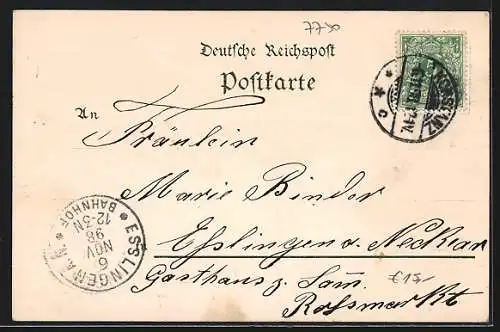 7730
Deutsche Reichspost
Postkarte
An
Fräulein
Marie Binder
Esslingen a. Neckar
Gasthaus z. Lamm
Rossmarkt
€ 15,-
KONSTANZ
* c *
ESSLINGEN a. N.
* BAHNHOF *
6
NOV
98
12-3N